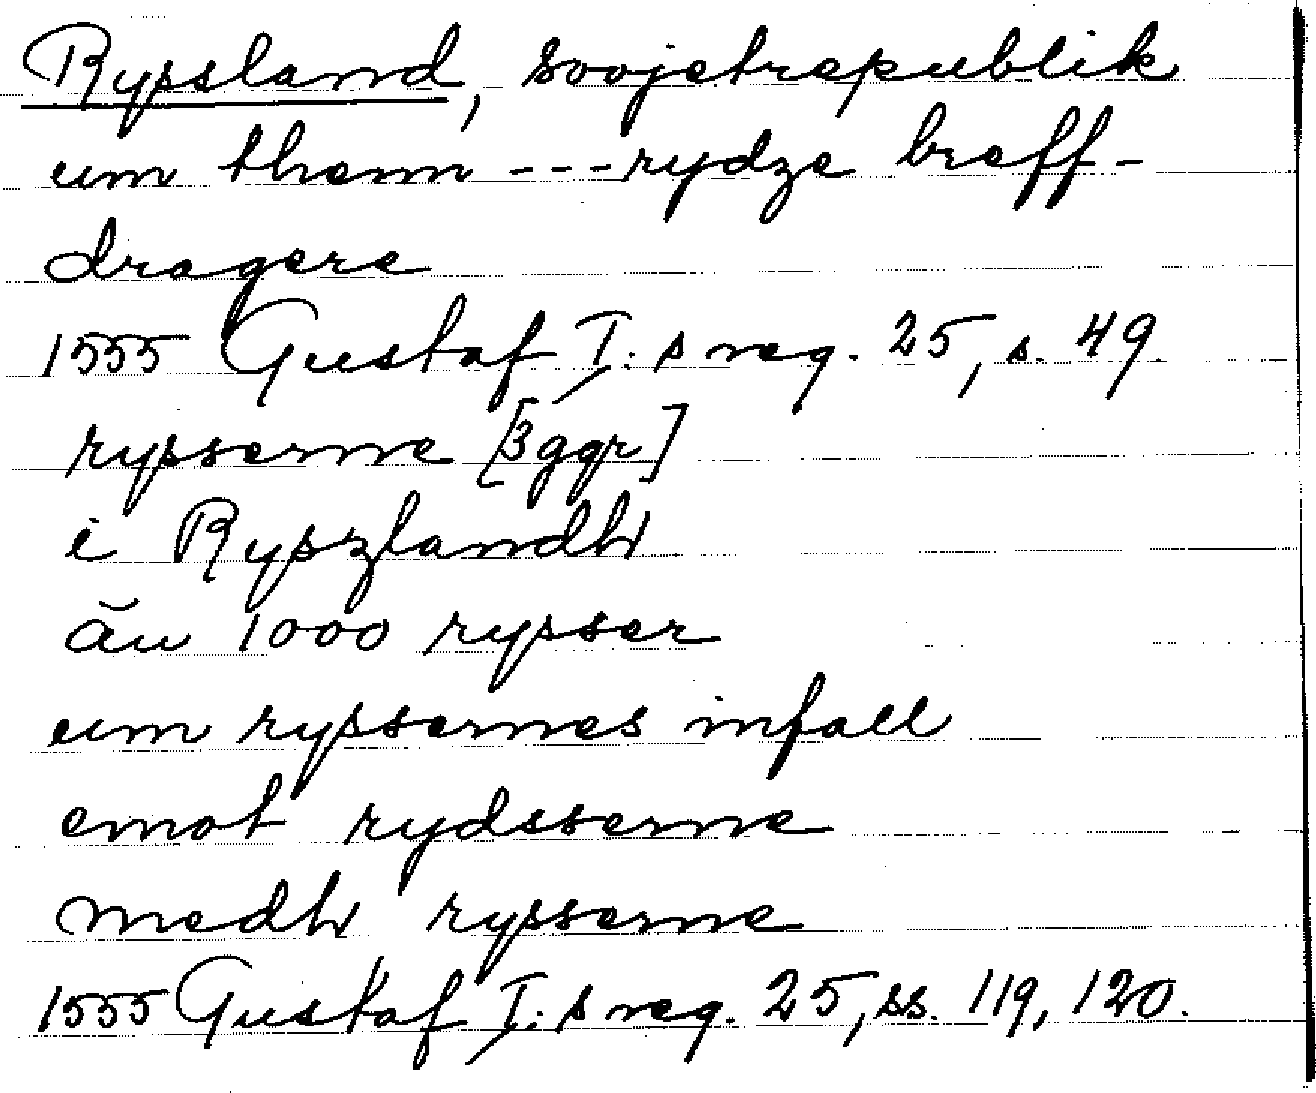 Ryssland, sovjetrepublik
um them ---rydze breff-
dragere
1555 Gustaf I:s reg. 25, s. 49
rysserne [3 ggr]
i Ryszlandh
än 1000 rysser
um ryssernes infall
emot rydsserne
medh rysserne
1555 Gustaf I:s reg. 25, ss. 119, 120.